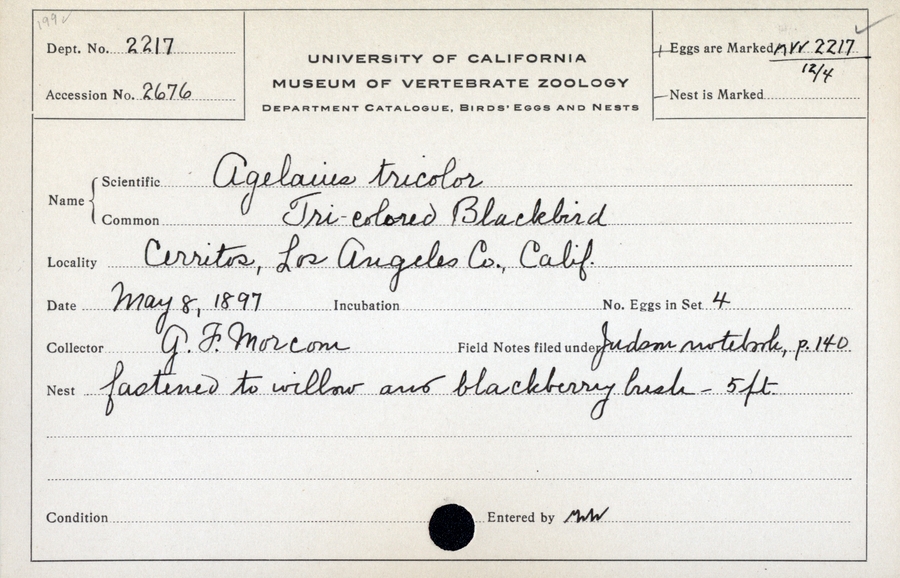 199
Dept. No. 2217
Accession No. 2676
UNIVERSITY OF CALIFORNIA
MUSEUM OF VERTEBRATE ZOOLOGY
DEPARTMENT CATALOGUE, BIRDS' EGGS AND NESTS
Eggs are Marked 2217
12/4
Nest is Marked
Name
Scientific Agelaius tricolor
Common Tri-colored Blackbird
Locality Cerritos, Los Angeles Co., Calif.
Date May 8, 1897 Incubation No. Eggs in Set 4
Collector G. F. Morcom Field Notes filed under Judson notebook, p. 140
Nest fastened to willow and blackberry bush – 5 ft.
Condition Entered by